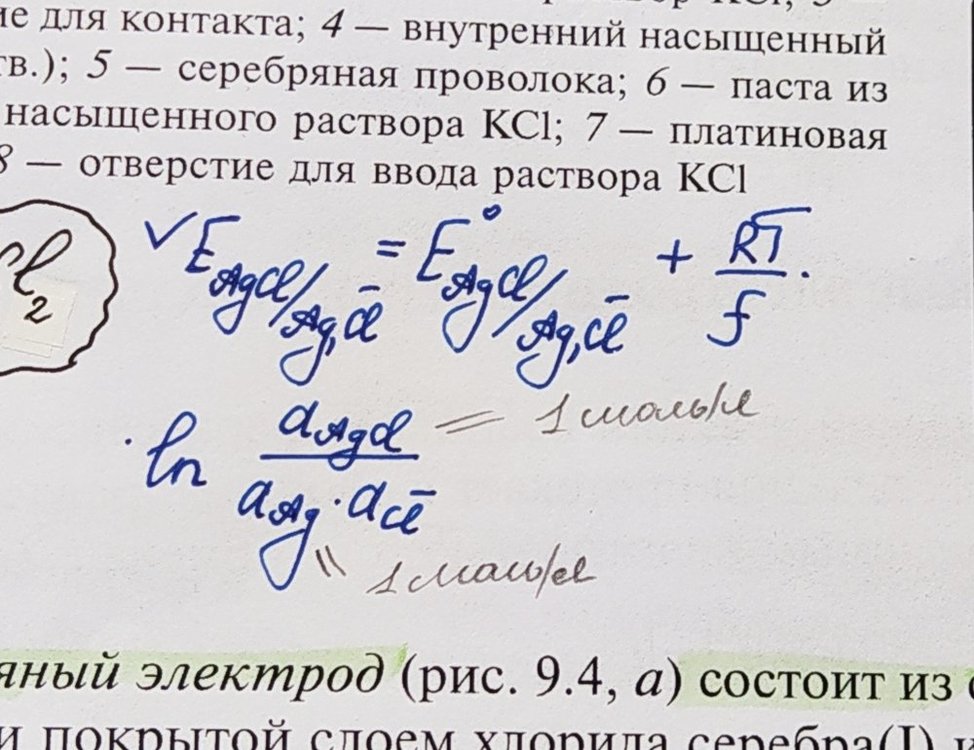 ие для контакта; 4 — внутренний насыщенный
тв.); 5 — серебряная проволока; 6 — паста из
насыщенного раствора KCl; 7 — платиновая
8 — отверстие для ввода раствора KCl
Cl₂
✓ E AgCl/Ag,Cl⁻ = E° AgCl/Ag,Cl⁻ + RT/f ·
· ln a AgCl / a Ag · a Cl⁻
= 1 моль/л
" 1 моль/л
яный электрод (рис. 9.4, а) состоит из с
и покрытой слоем хлорида серебра(I) и